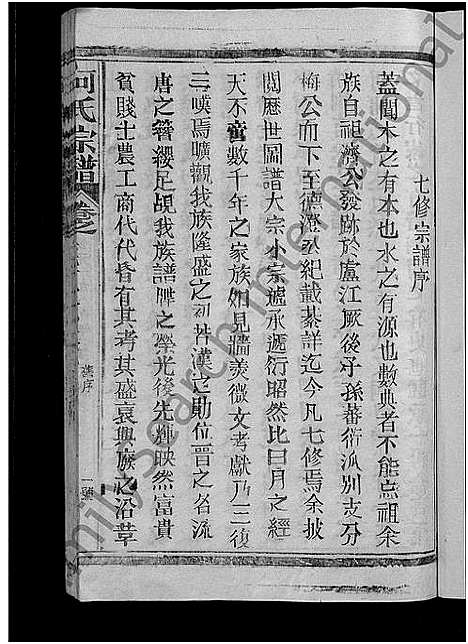 七修宗譜序
蓋聞木之有本也水之有源也數典者不能忘祖余
族自祖濟公發跡於廬江厥後子孫蕃衍派別支分
梅公而下至德澄公紀載綦詳迄今凡七修焉余披
閱歷世圖譜大宗小宗遞承遞衍昭然比日月之經
天不啻數千年之家族如見牆羹徵文考獻乃三復
三嘆焉曠觀我族隆盛之初若漢之勛位晋之名流
唐之簪纓足覘我族譜牒之榮光後先輝映然富貴
貧賤士農工商代代皆有其者其盛衰興族之沿革
何氏宗譜
卷之
舊序
一
FamilySearch International